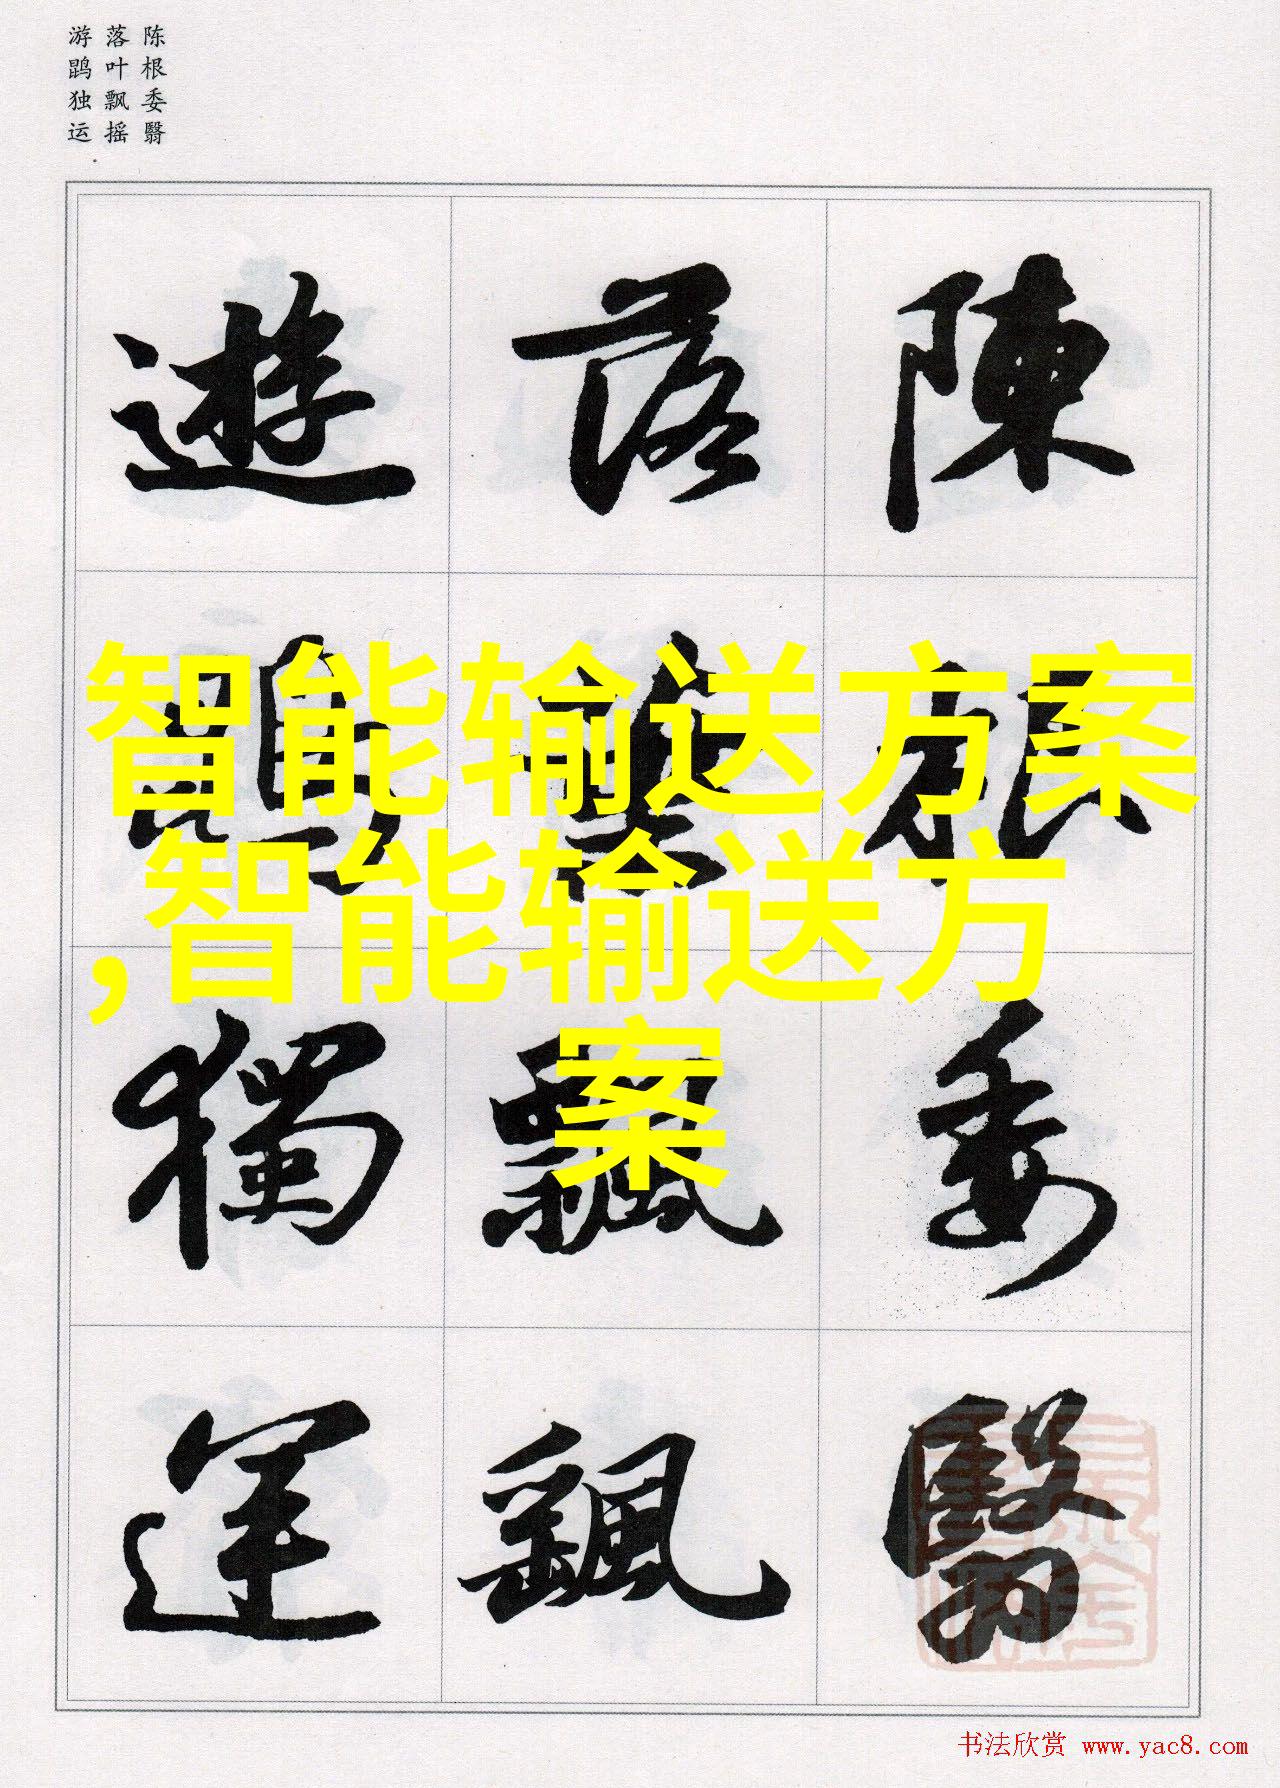 陈根委翳
落叶飘摇
游鹍独运
陳根委翳
落葉飄颻
遊鵾獨運
智能输送方案
,智能输送方
案
书法欣赏 www.yac8.com